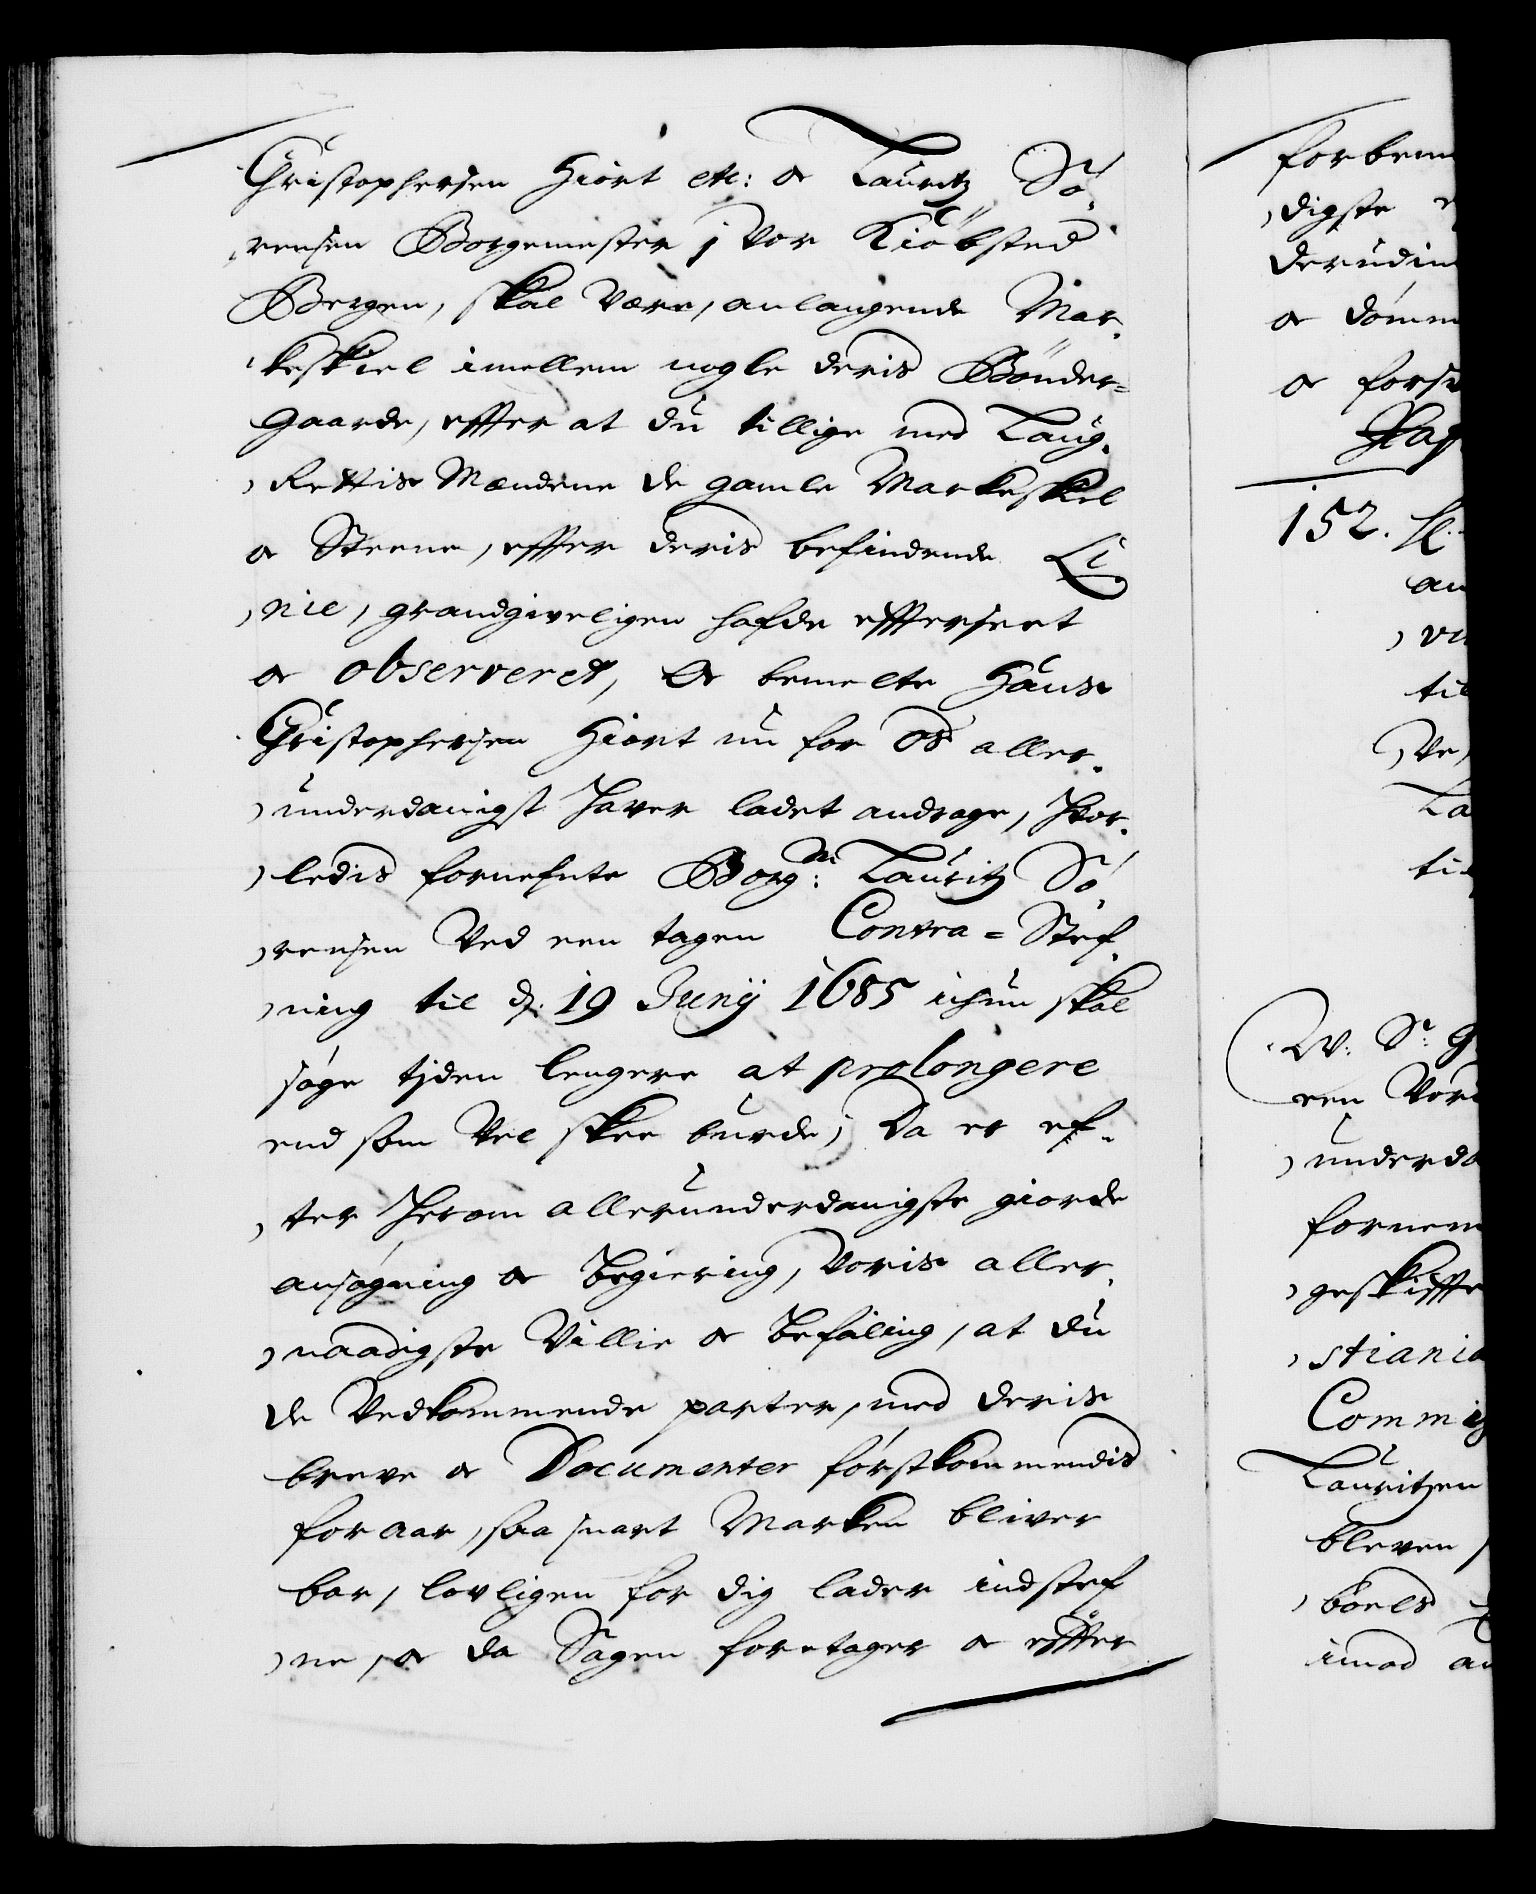 Christophersen Hiort etc: oc Lauritz Sö,
,rensen Borgemester j Vor Kiöbsted
Bergen, skal være, anlangende Mar,
,keskiel imellem nogle deris Bönder=
gaarde, effter at du tillige med Laug,
,Rettis Mændene de gamle Markeskiel
oc Steene, effter deris befindende Li
,nie, grandgiveligen hafde effterseet
oc observeret, Oc bemelte Hans
Christophersen Hiort nu for os aller,
,underdanigst haver ladet andrage, hvor,
,ledis fornefnte Borgm: Lauritz Sö,
,rensen Ved een tagen Contra=Stef,
,ning til d: 19 Junij 1685 ichun skal
søge tjden lengere at prolongere
end som Vel skee burde, Da er ef,
,ter herom allerunderdanigste giorde
ansøgning oc begiering, Voris aller,
,naadigste Villie oc befaling, at du
de Vedkommende parter, med deris
breve oc Documenter förstkommendis
foraar, saa snart Marken bliver
bar, lovligen for dig lader indstef
,ne, oc da Sagen foretager oc effter
forbem
,digste
derudin
oc dömm
oc forse
152.
til
La
W: Sr: G
een Vor
,underda
fornem
,geskiffte
,stiania
Commis
Lauritzen
bleven
,böels
imod an